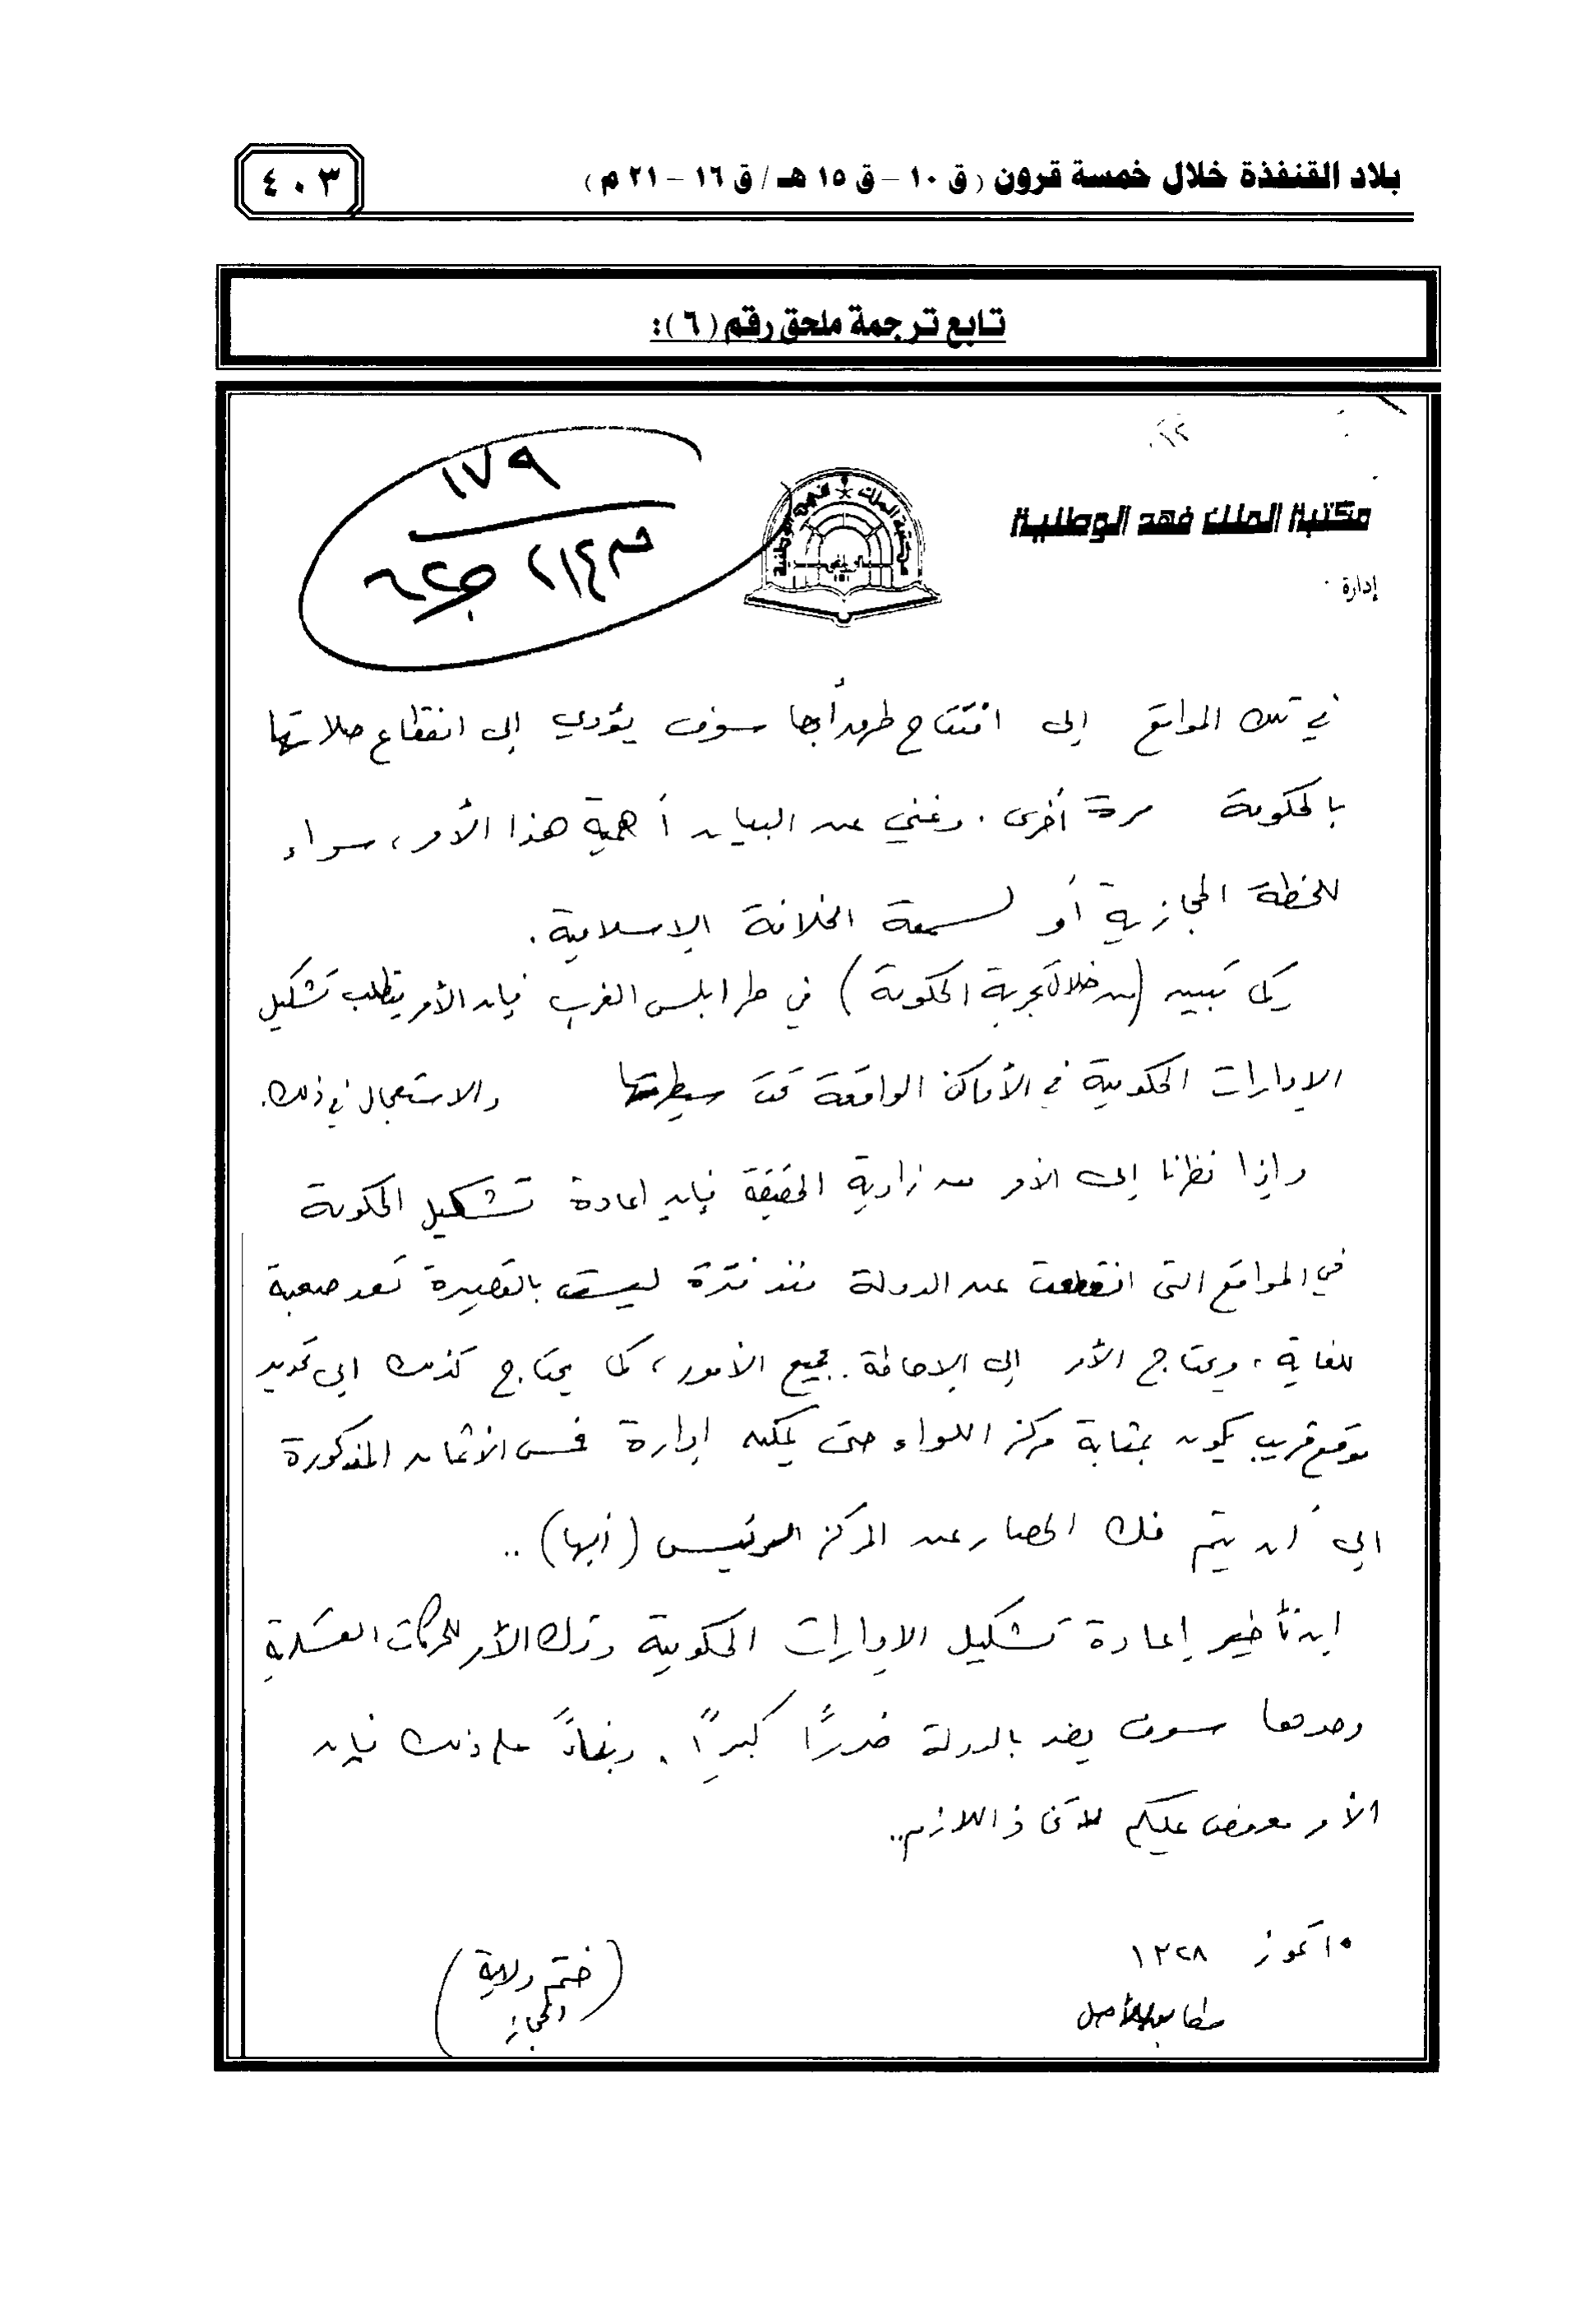 بلاد القنفذة خلال خمسة قرون (ق ١٠ – ق ١٥ هـ / ق ١٦ – ٢١ م)
٤٠٣
تابع ترجمة ملحق رقم (٦):
١٧٩
مكتبة الملك فهد الوطنية
إدارة
في تلك المواقع إلى افتتاح طريق أبها سوف يؤدي إلى انقطاع صلاتها
بالحكومة مرة أخرى. وغني عن البيان أهمية هذا الأمر، سواء
للخطة الحجازية أو لسمعة الخلافة الإسلامية.
وكما تبين (من خلال تجربة الحكومة) في طرابلس الغرب فإن الأمر يتطلب تشكيل
الإدارات الحكومية في الأماكن الواقعة تحت سيطرتها والاستعجال في ذلك.
وإذا نظرنا إلى الأمر من زاوية الحقيقة فإن إعادة تشكيل الحكومة
في المواقع التي انقطعت عن الدولة منذ فترة ليست بالقصيرة تعد صعبة
للغاية، ويحتاج الأمر إلى الإحاطة بجميع الأمور، كما يحتاج كذلك إلى تحديد
موقع قريب يكون بمثابة مركز اللواء حتى يمكن إدارة المذكورة
إلى أن يتم فك الحصار عن المركز الرئيس (أبها)..
إن تأخير إعادة تشكيل الإدارات الحكومية وترك الأمر للحركات العسكرية
وحدها سوف يضر بالدولة ضررًا كبيرًا. وبناءً على ذلك فإن
الأمر معروض عليكم لاتخاذ اللازم..
١٥ تموز ١٣٢٨
مطابق للأصل
(ختم ولاية
الحجاز)